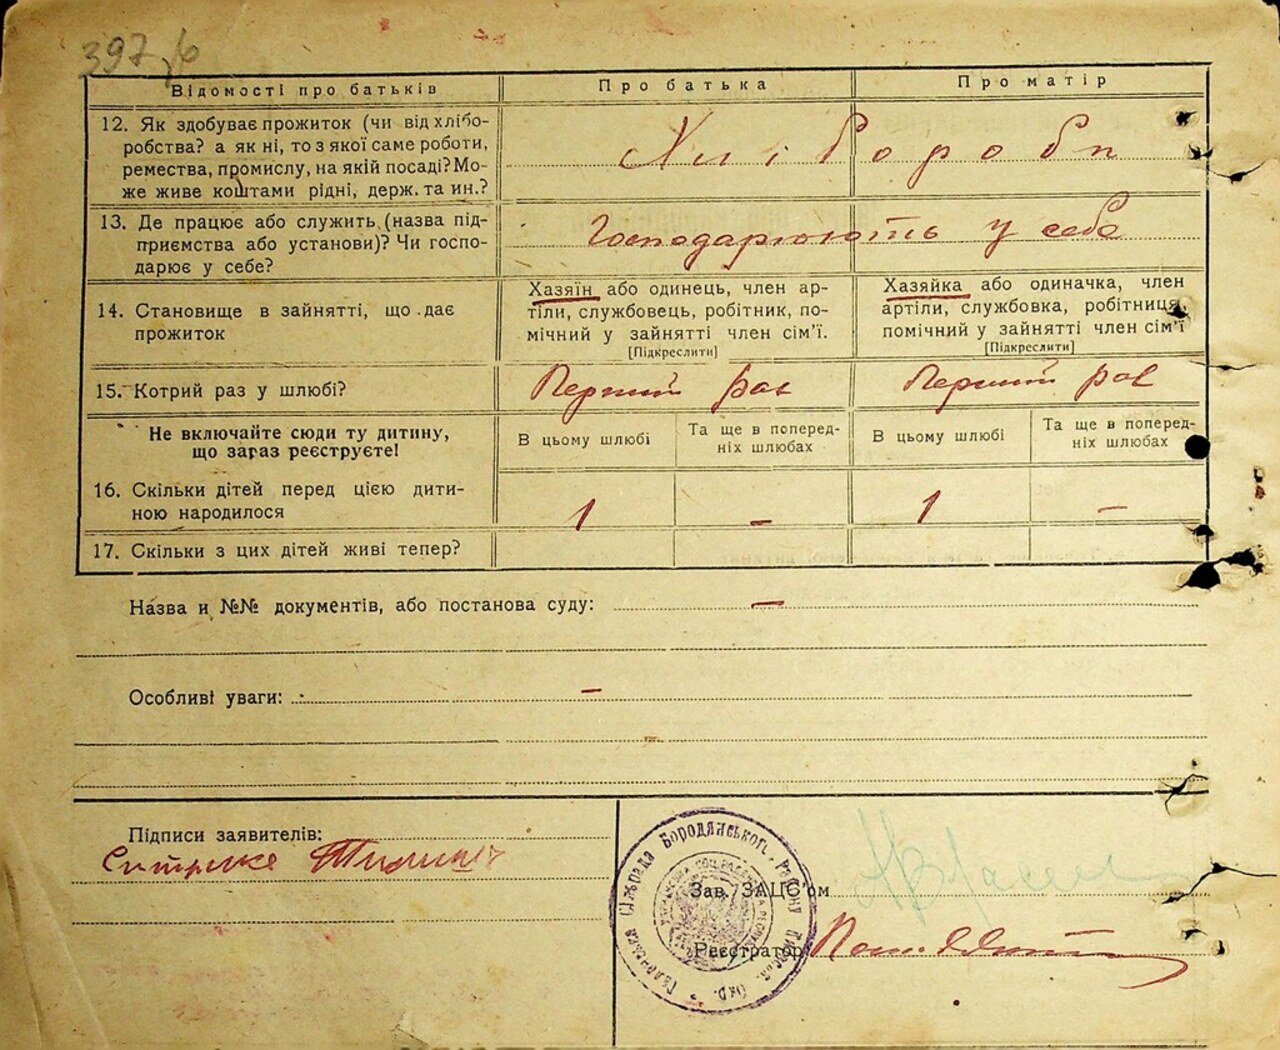 397
Відомості про батьків
Про батька
Про матір
12. Як здобуває прожиток (чи від хлібо-
робства? а як ні, то з якої саме роботи,
ремества, промислу, на якій посаді? Мо-
же живе коштами рідні, держ. та ин.?
Хлібороби
13. Де працює або служить (назва під-
приємства або установи)? Чи госпо-
дарює у себе?
Господарюють у себе
14. Становище в зайнятті, що дає
прожиток
Хазяїн або одинець, член ар-
тіли, службовець, робітник, по-
мічний у зайнятті член сім'ї.
[Підкреслити]
Хазяйка або одиначка, член
артіли, службовка, робітниця,
помічний у зайнятті член сім'ї
[Підкреслити]
15. Котрий раз у шлюбі?
Перший раз
Перший раз
Не включайте сюди ту дитину,
що зараз реєструєте!
В цьому шлюбі
Та ще в поперед-
ніх шлюбах
В цьому шлюбі
Та ще в поперед-
ніх шлюбах
16. Скільки дітей перед цією дити-
ною народилося
1
–
1
–
17. Скільки з цих дітей живі тепер?
Назва и №№ документів, або постанова суду: –
Особливі уваги: –
Підписи заявителів:
Зав. ЗАЦС'ом
Реєстратор
Сільрада Бородянського Району